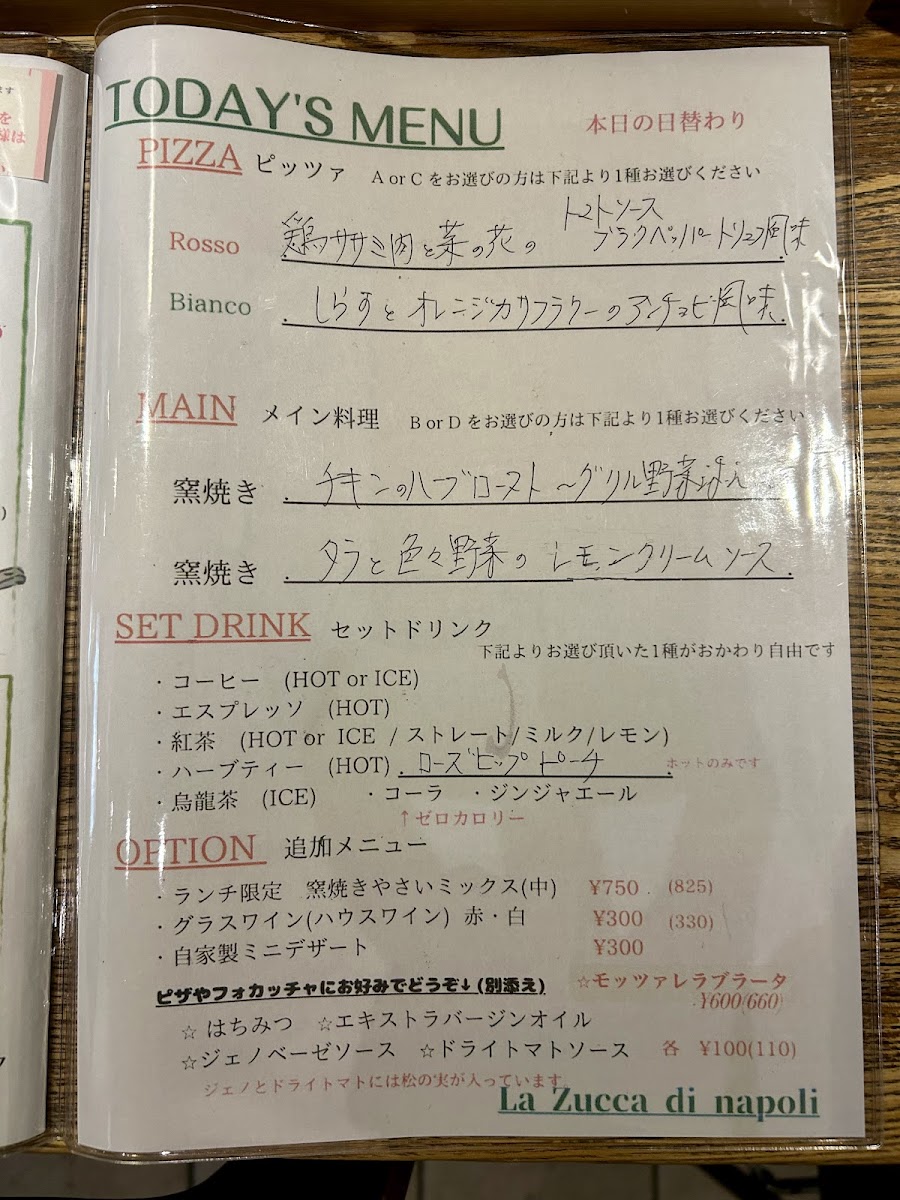 ます
を
様は
い。
TODAY'S MENU
本日の日替わり
PIZZA ピッツァ A or C をお選びの方は下記より1種お選びください
Rosso 鶏ササミ肉と菜の花の トマトソース
ブラックペッパートリュフ風味
Bianco しらすとオレンジカリフラワーのアンチョビ風味
MAIN メイン料理 B or D をお選びの方は下記より1種お選びください
窯焼き チキンのハーブロースト～グリル野菜添え
窯焼き タラと色々野菜のレモンクリームソース
SET DRINK セットドリンク
下記よりお選び頂いた1種がおかわり自由です
・コーヒー (HOT or ICE)
・エスプレッソ (HOT)
・紅茶 (HOT or ICE / ストレート/ミルク/レモン)
・ハーブティー (HOT) ローズヒップピーチ ホットのみです
・烏龍茶 (ICE) ・コーラ ・ジンジャエール
↑ゼロカロリー
OPTION 追加メニュー
・ランチ限定 窯焼きやさいミックス(中) ¥750 (825)
・グラスワイン(ハウスワイン) 赤・白 ¥300 (330)
・自家製ミニデザート ¥300
ピザやフォカッチャにお好みでどうぞ↓(別添え) ☆モッツァレラブラータ
¥600(660)
☆はちみつ ☆エキストラバージンオイル
☆ジェノベーゼソース ☆ドライトマトソース 各 ¥100(110)
ジェノとドライトマトには松の実が入っています。
La Zucca di napoli